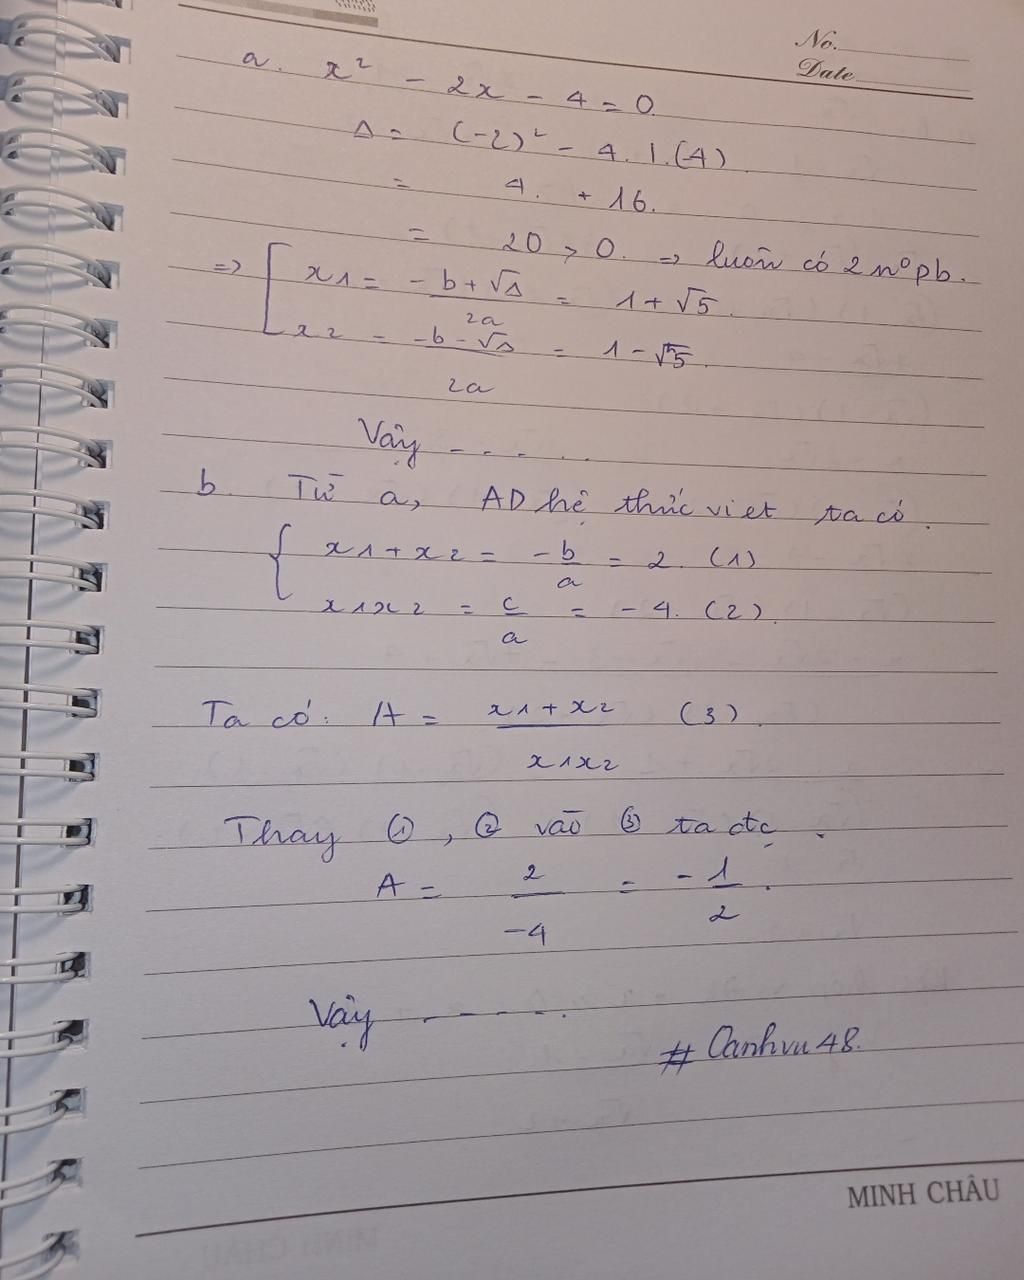 No.
Date
a. x² - 2x - 4 = 0
Δ = (-2)² - 4.1.(-4)
= 4. + 16.
= 20 > 0. => luôn có 2 n⁰ pb.
=> [ x1 = -b+√Δ / 2a = 1+√5.
x2 = -b-√Δ / 2a = 1-√5.
Vậy - - - . .
b. Từ a, AD hệ thức viet ta có.
{ x1+x2 = -b/a = 2. (1)
x1x2 = c/a = -4. (2).
Ta có: A = x1+x2 / x1x2 (3).
Thay ①, ② vào ③ ta đc.
A = 2/-4 = -1/2.
Vậy - - - - - .
# Oanhvu48.
MINH CHÂU